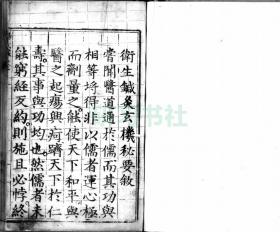 衛生鍼灸玄機秘要敘
嘗聞醫道通於儒而其功與
相等埒得非以儒者運心極
而劑量之能使天下和平與
醫之起瘍興痾躋天下於仁
壽其事與功均也然儒者未
能窮經反約則施且必悖終